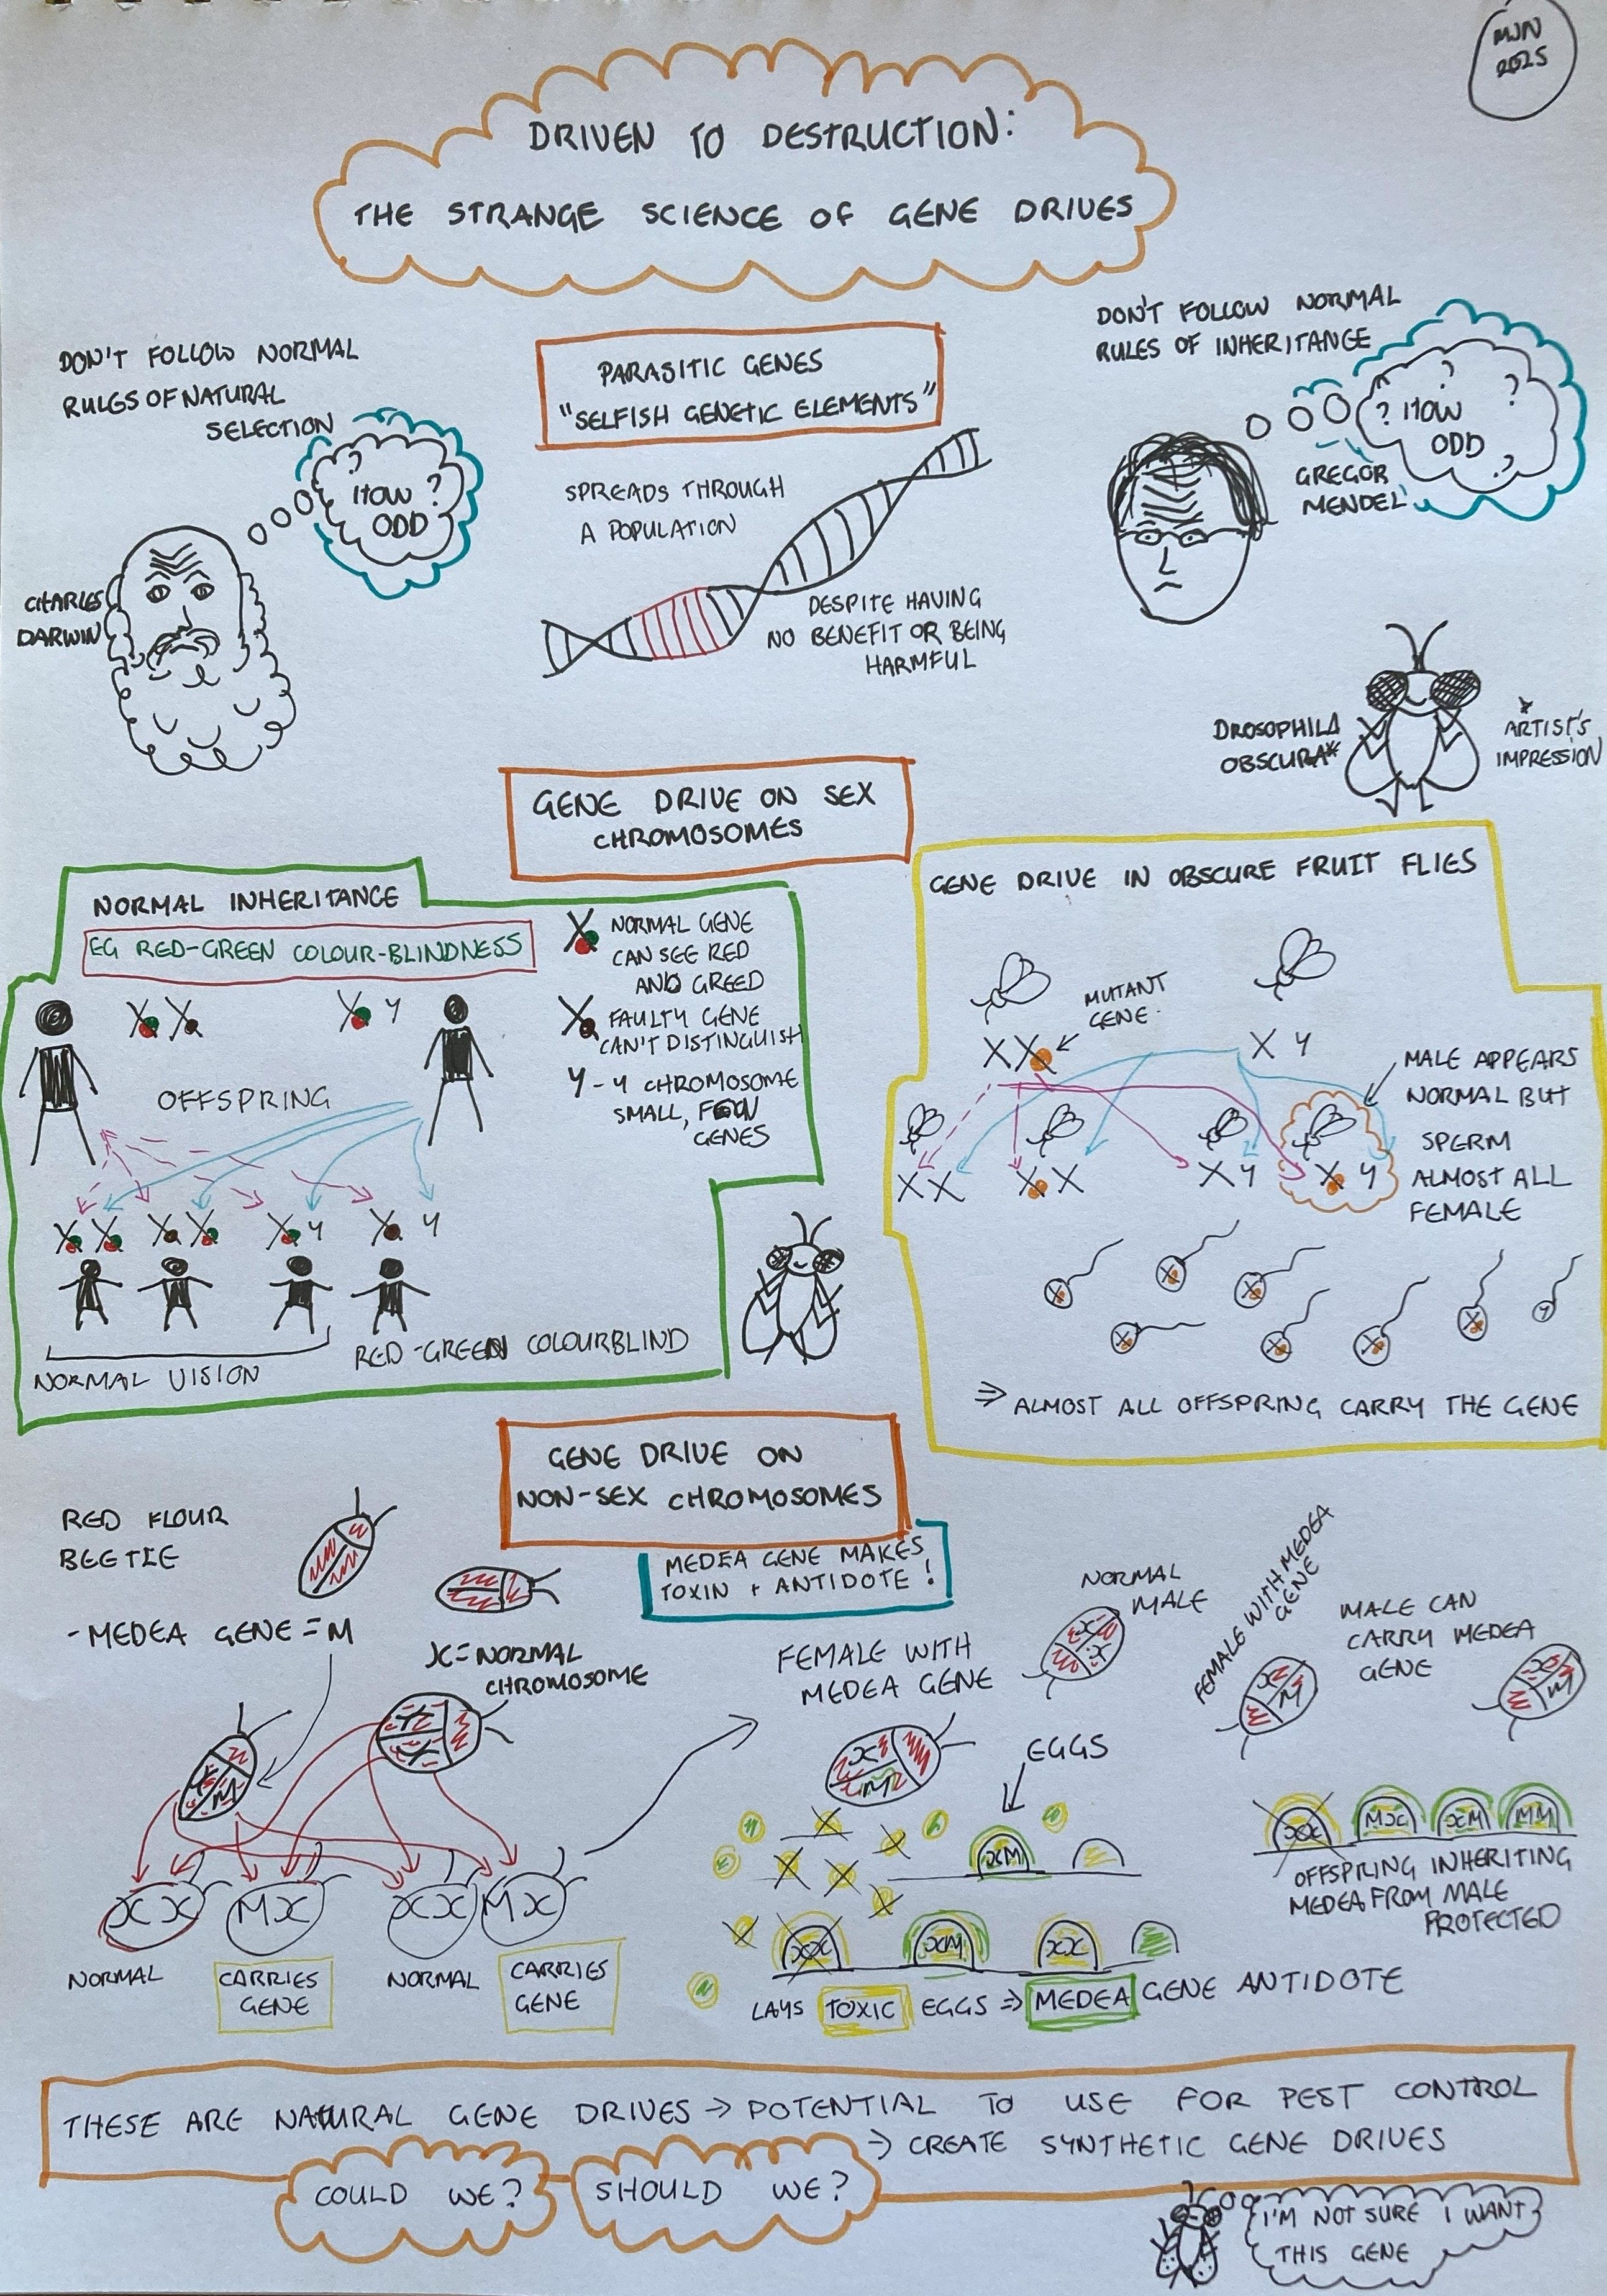 MJN
2025
DRIVEN TO DESTRUCTION:
THE STRANGE SCIENCE OF GENE DRIVES
DON'T FOLLOW NORMAL
RULES OF NATURAL
SELECTION
? HOW ?
ODD
CHARLES
DARWIN
PARASITIC GENES
"SELFISH GENETIC ELEMENTS"
SPREADS THROUGH
A POPULATION
DESPITE HAVING
NO BENEFIT OR BEING
HARMFUL
DON'T FOLLOW NORMAL
RULES OF INHERITANCE
? ? ?
HOW
ODD
?
GREGOR
MENDEL
DROSOPHILA
OBSCURA*
* ARTIST'S
IMPRESSION
GENE DRIVE ON SEX
CHROMOSOMES
NORMAL INHERITANCE
EG RED-GREEN COLOUR-BLINDNESS
X X
X Y
OFFSPRING
X X X X X Y X Y
NORMAL VISION
RED-GREEN COLOURBLIND
X NORMAL GENE
CAN SEE RED
AND GREED
X FAULTY GENE
CAN'T DISTINGUISH
Y - Y CHROMOSOME
SMALL, FEW
GENES
GENE DRIVE IN OBSCURE FRUIT FLIES
MUTANT
GENE
X X
X Y
MALE APPEARS
NORMAL BUT
SPERM
ALMOST ALL
FEMALE
X X X X X Y X Y
X X X X X X X Y
⇒ ALMOST ALL OFFSPRING CARRY THE GENE
GENE DRIVE ON
NON-SEX CHROMOSOMES
MEDEA GENE MAKES
TOXIN + ANTIDOTE!
RED FLOUR
BEETLE
- MEDEA GENE = M
X = NORMAL
CHROMOSOME
X M
X X
X X
M X
X X
M X
NORMAL
CARRIES
GENE
NORMAL
CARRIES
GENE
FEMALE WITH
MEDEA GENE
X M
EGGS
XM
XX
XM
XX
LAYS TOXIC EGGS ⇒ MEDEA GENE ANTIDOTE
NORMAL
MALE
X X
FEMALE WITH MEDEA
GENE
X M
MALE CAN
CARRY MEDEA
GENE
X M
XX MX XM MM
OFFSPRING INHERITING
MEDEA FROM MALE
PROTECTED
THESE ARE NATURAL GENE DRIVES → POTENTIAL TO USE FOR PEST CONTROL
→ CREATE SYNTHETIC GENE DRIVES
COULD WE?
SHOULD WE?
I'M NOT SURE I WANT
THIS GENE